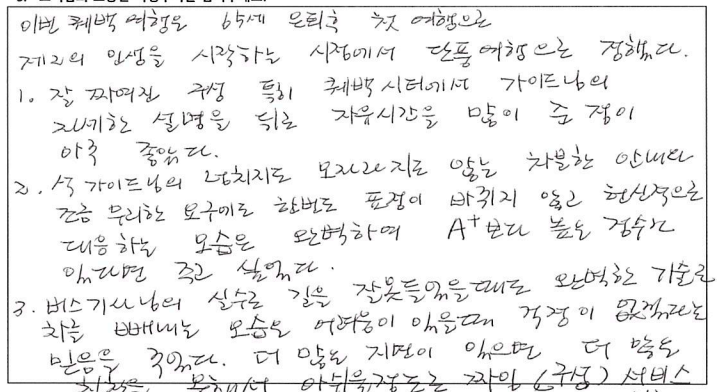 이번 퀘백 여행은 65세 은퇴후 첫 여행으로
제2의 인생을 시작하는 시점에서 단풍여행으로 정했다.
1. 잘 짜여진 구성 특히 퀘백시티에서 가이드님의
자세한 설명을 뒤로 자유시간을 많이 준 점이
아주 좋았다.
2. 가이드님의 넘치지도 모자라지도 않는 차분한 안내와
조금 무리한 요구에도 한번도 표정이 바뀌지 않고 헌신적으로
대응하는 모습은 완벽하여 A+보다 높은 점수가
있다면 주고 싶었다.
3. 버스기사님의 실수로 길을 잘못들었을때도 완벽한 기술로
차를 빼내는 모습은 어려움이 있을때 걱정이 없겠다는
믿음을 주었다. 더 많은 지면이 있으면 더 많은
칭찬을 못해서 아쉬울정도로 짜임(구성) 서비스